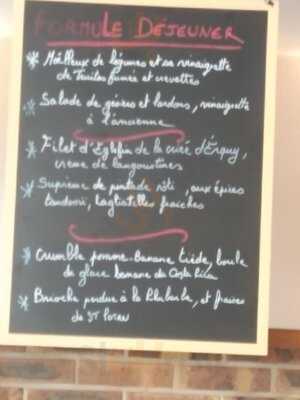 FORMULE DÉJEUNER
* Moëlleux de légumes et sa vinaigrette
de Tomates fumés et crevettes
* Salade de gésiers et lardons, vinaigrette
à l'ancienne
* Filet d'Eglefin de la criée d'Erquy,
crème de langoustines
* Suprême de pintade rôti, aux épices
tandoori, tagliatelles fraîches
* Crumble pomme-banane tiède, boule
de glace banane du Costa Rica
* Brioche perdue à la Rhubarbe, et fraises
de